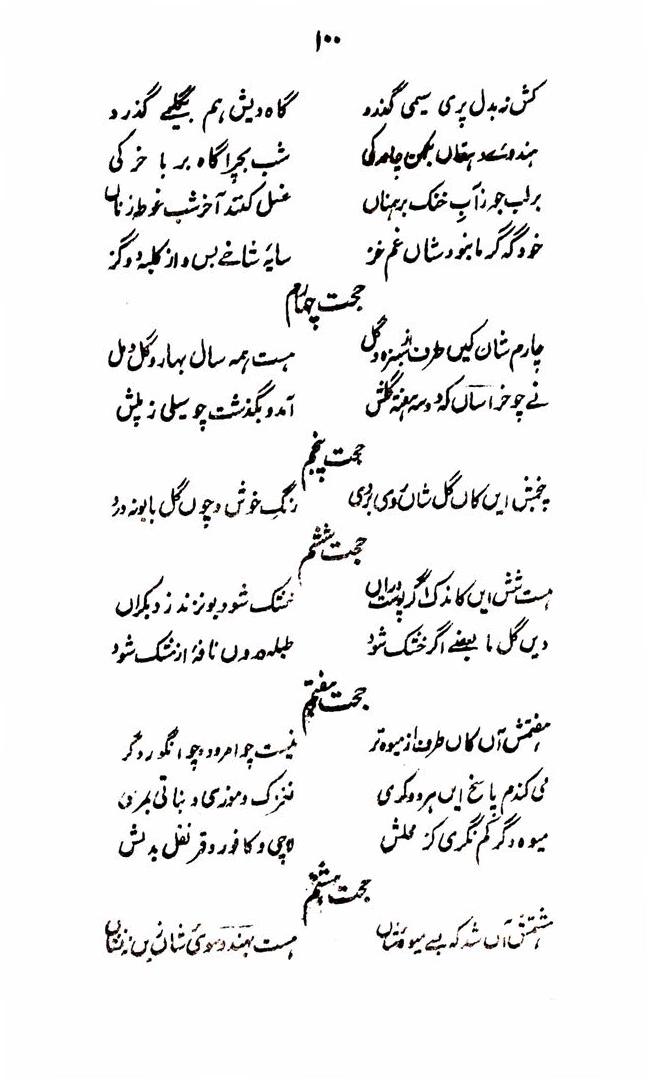 ۱۰۰
کش نه بدل پری سیمی گذرد گاه درویش هم بیگلیمے گذرد
هندوے دهقاں بکهن چادرکی شب بچراگاه بر باخرکی
بر لب جو زآب خنک برهمناں غسل کنند آخر شب غوطه زناں
خود گه گرما نبود شاں غم خز سایهٔ شاخے بس و از کلبه دو گز
حجت چهارم
چارم شان کیں طرف از سبزه و گل هست همه سال بهار و گل و مل
نے چو خراساں که دو سه هفته گلش آمد و بگذشت چو سیلی ز پلش
حجت پنجم
پنجمش ایں کاں گل شاں روی رنگ خوش و چوں گل بابونه درد
حجت ششم
هست ششم ایں کاندک اگر خشک شود بو نزند ز دیگراں
ویں گل ما بیضے اگر خشک شود طبله دروں نافهٔ از مشک شود
حجت هفتم
هفتمش آں کاں طرف از میوه تر نیست چو امرود و چو انگور دگر
می کندم پاسخ ایں هر دو کری نغزک و موزی و نباتی
میوه دگر کم نگری کز محلش لاچی و کافور و قرنفل بدلش
حجت هشتم
هشتمش آں شد که بسے میوه هست بهند و سوی شاں